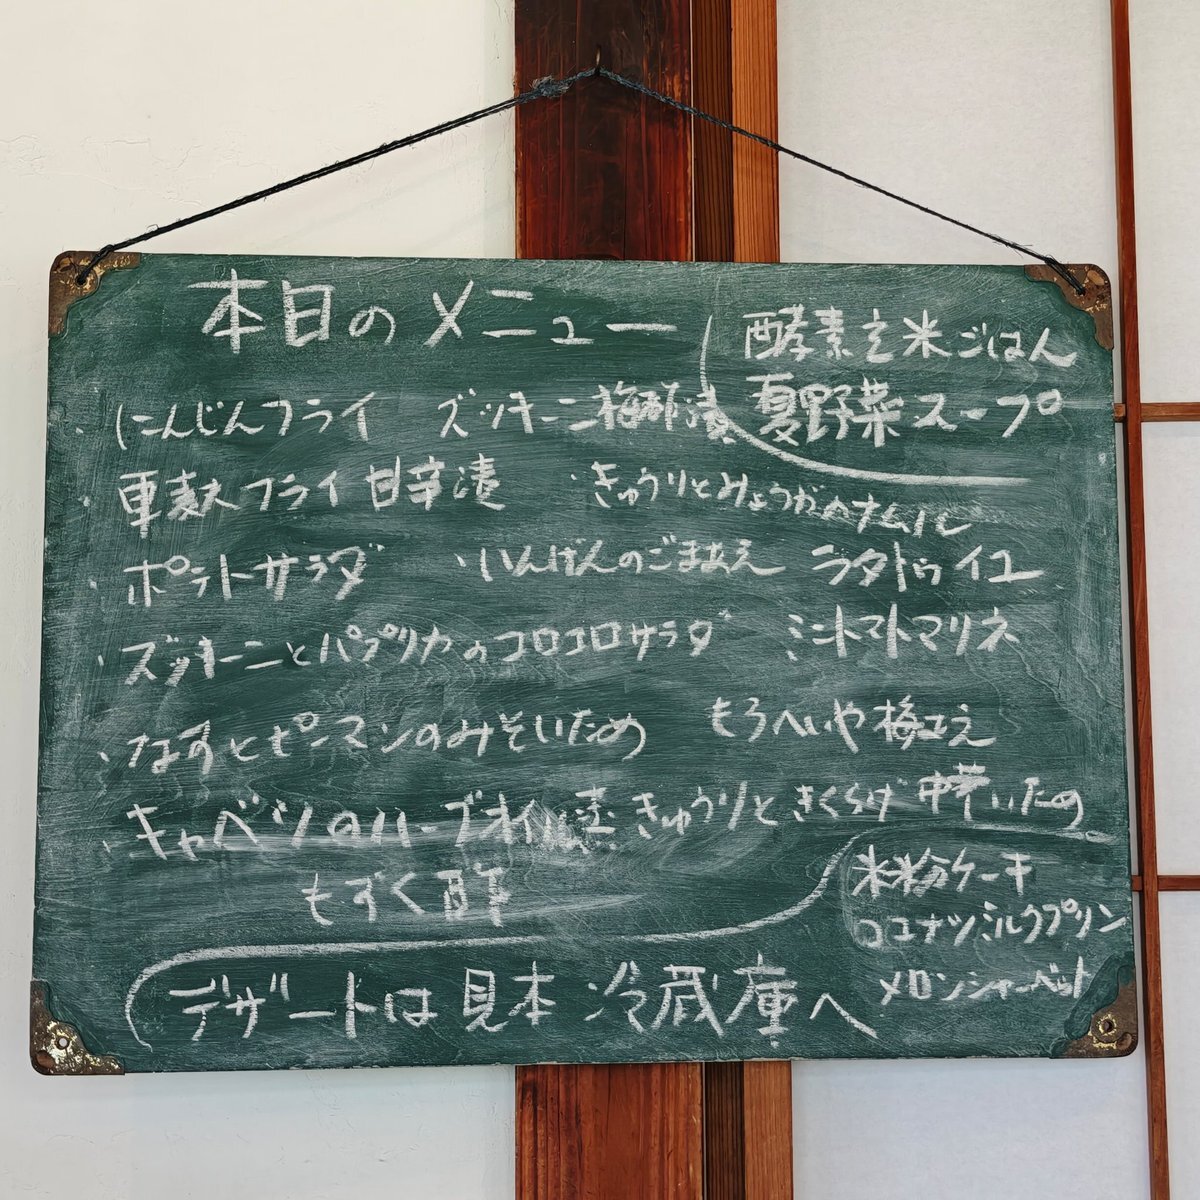 本日のメニュー
酵素玄米ごはん
夏野菜スープ
・にんじんフライ ズッキーニ梅酢漬
・車麸フライ甘辛漬 ・きゅうりとみょうがのナムル
・ポテトサラダ ・いんげんのごまあえ ラタトゥイユ
・ズッキーニとパプリカのコロコロサラダ ミニトマトマリネ
・なすとピーマンのみそいため もろへいや梅和え
・キャベツのハーブオイル蒸 きゅうりときくらげ中華いため
もずく酢
米粉ケーキ
ココナツミルクプリン
メロンシャーベット
デザートは見本冷蔵庫へ